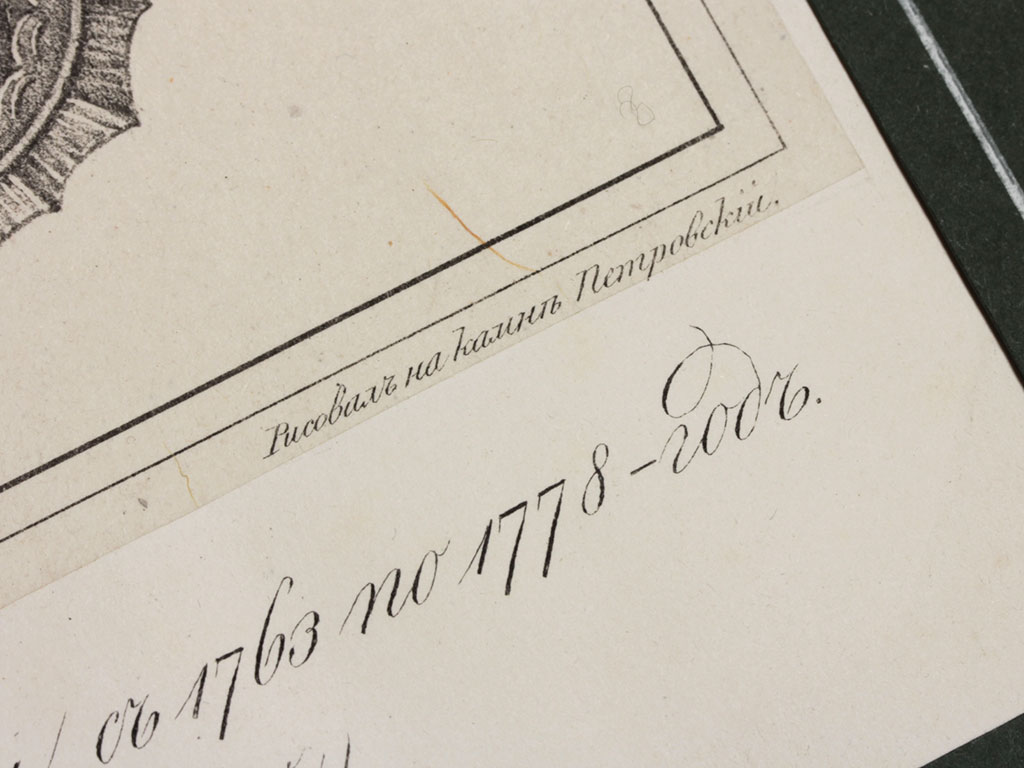 8
Рисовалъ на камнѣ Петровскій.
съ 1763 по 1778-годъ.